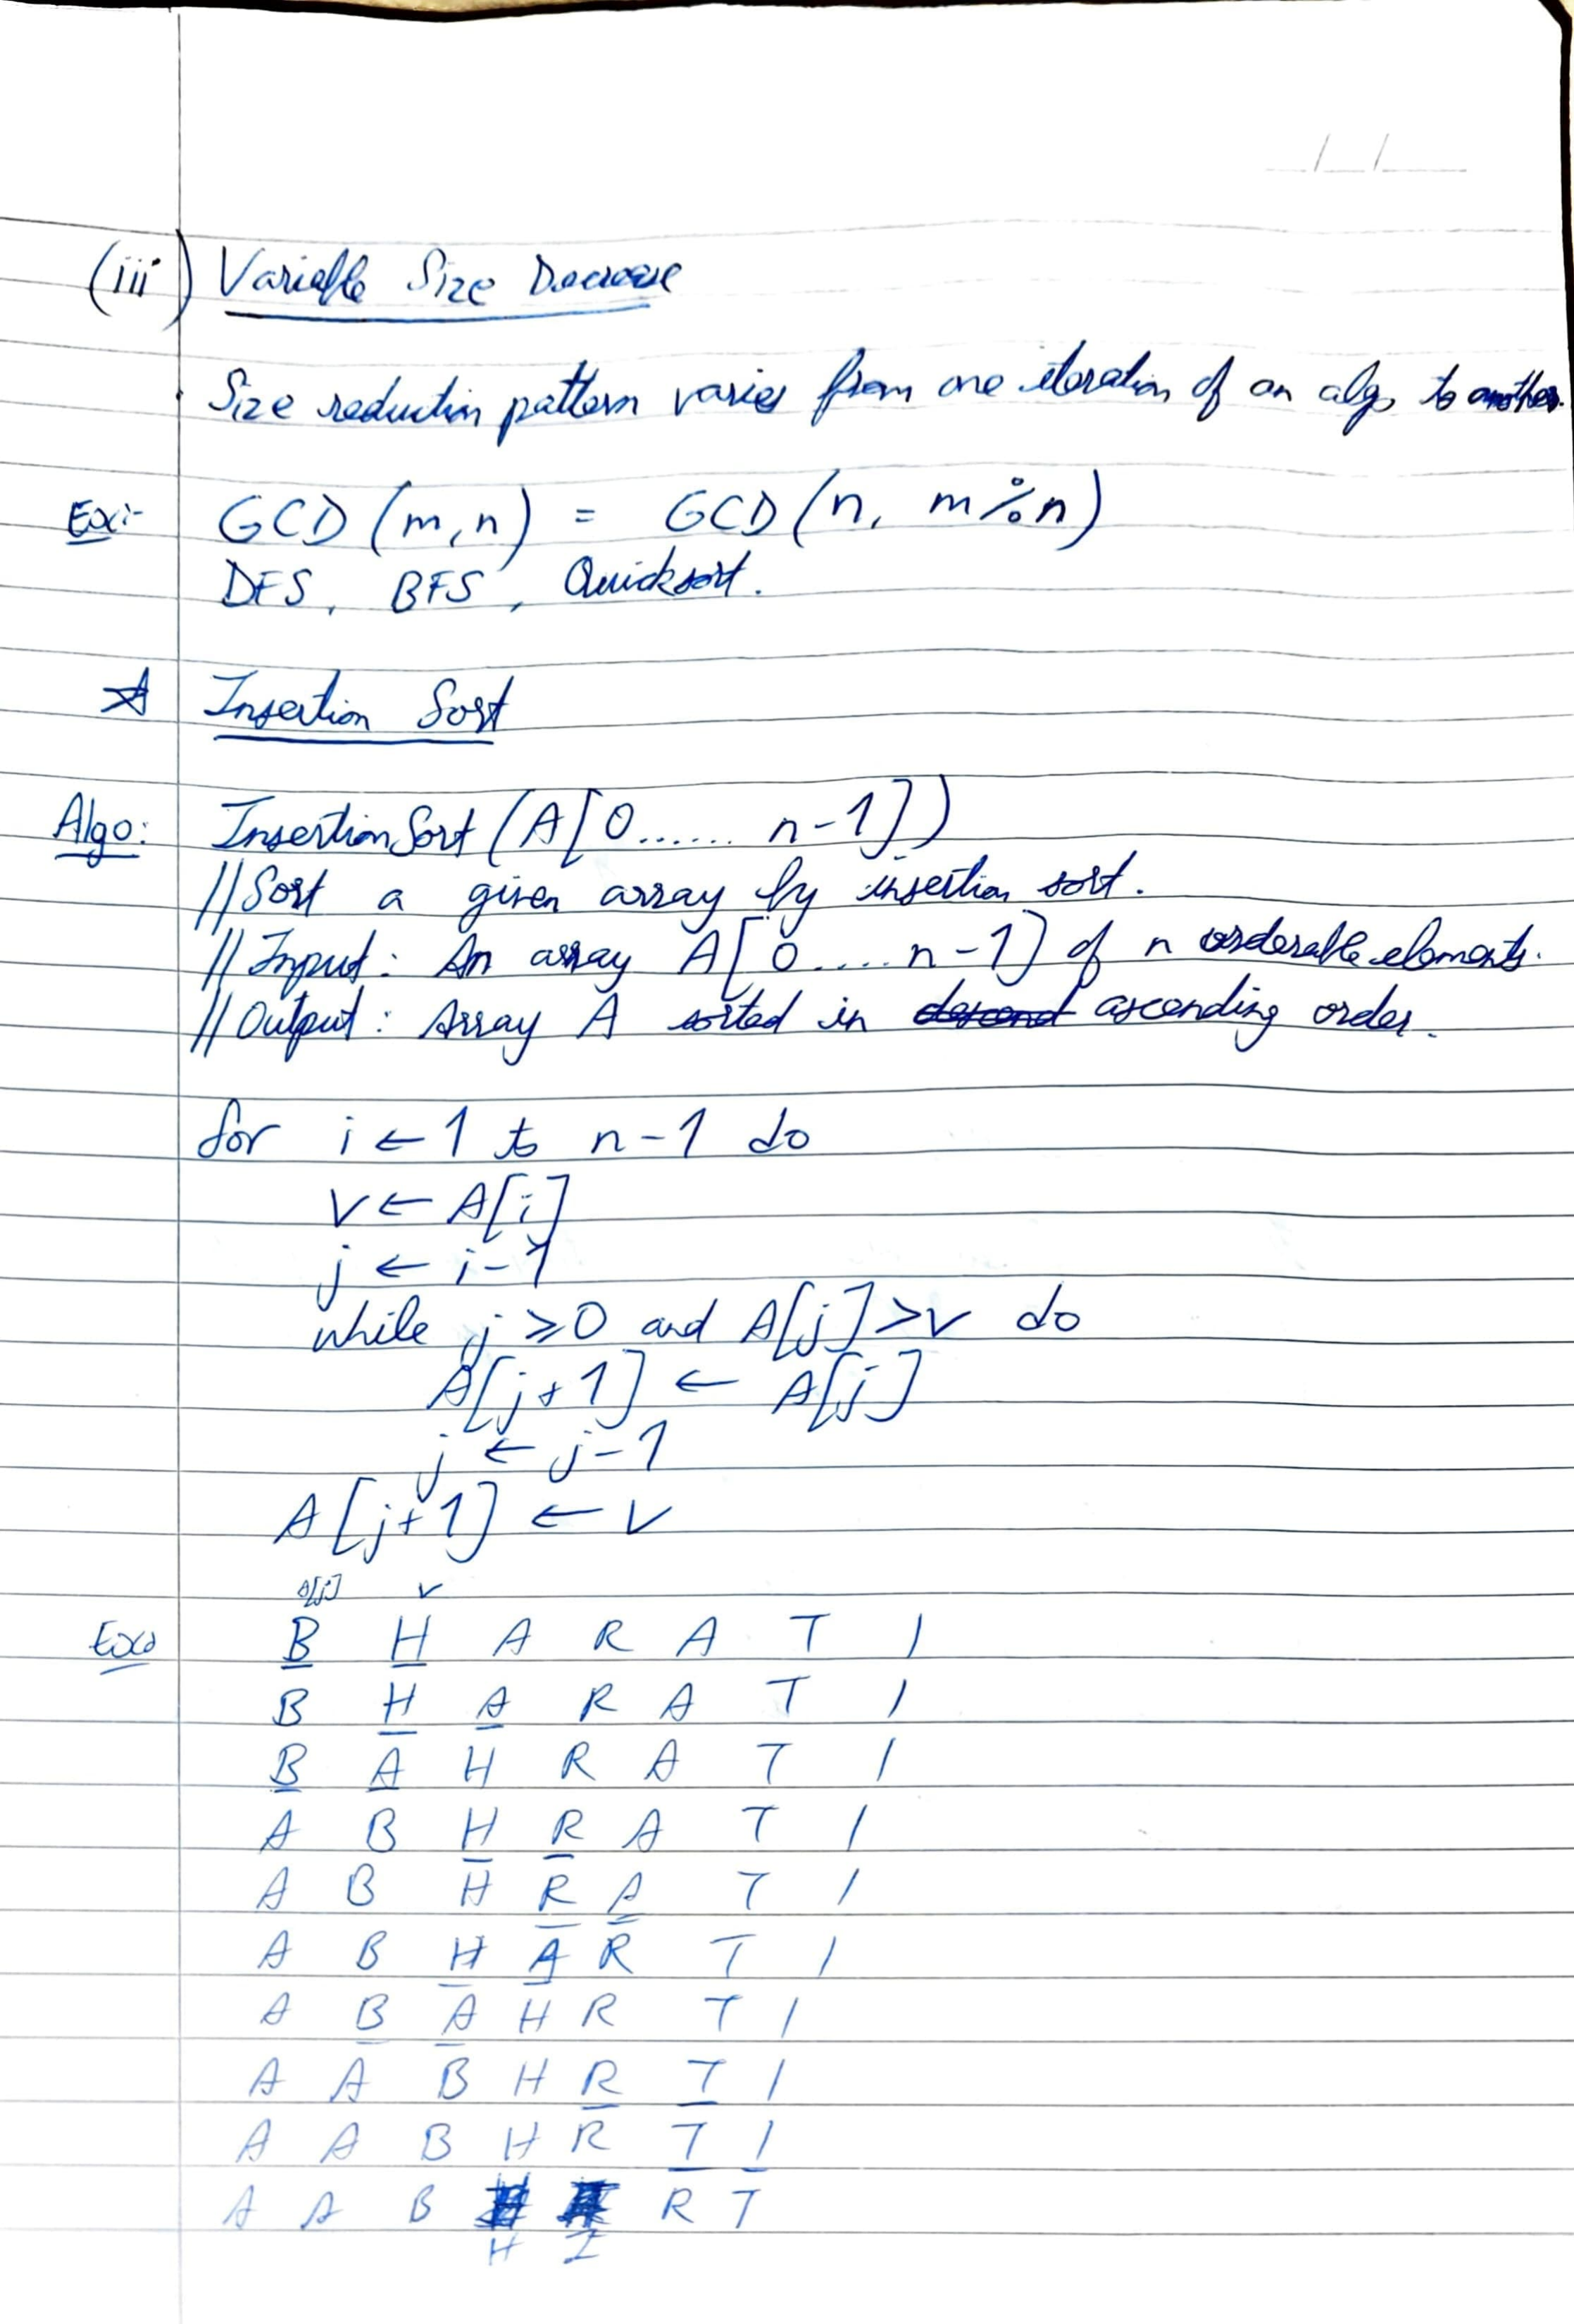 (iii) Variable Size Decrease
Size reduction pattern varies from one iteration of an algo to another.
Ex:- GCD (m,n) = GCD (n, m%n)
DFS, BFS, Quicksort.
☆ Insertion Sort
Algo: InsertionSort (A[0...... n-1])
//Sort a given array by insertion sort.
//Input: An array A[0.... n-1] of n orderable elements.
//Output: Array A sorted in descend ascending order.
for i ← 1 to n-1 do
v ← A[i]
j ← i-1
while j ≥ 0 and A[j] > v do
A[j+1] ← A[j]
j ← j-1
A[j+1] ← v
A[j] v
Ex B H A R A T I
B H A R A T I
B A H R A T I
A B H R A T I
A B H R A T I
A B H A R T I
A B A H R T I
A A B H R T I
A A B H R T I
A A B R T
H I